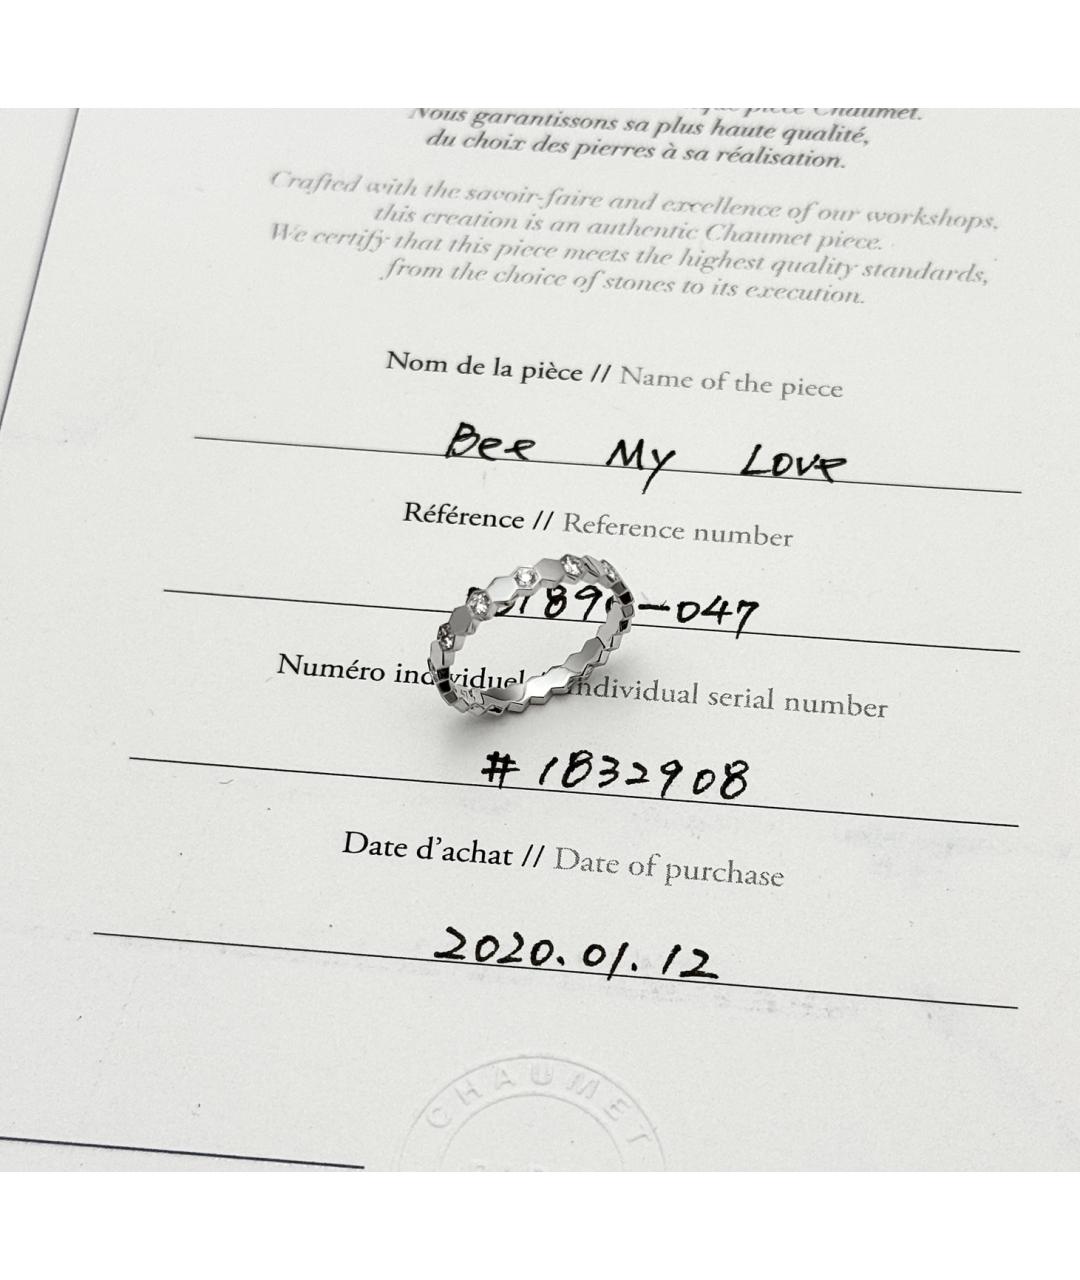 pièce Chaumet.
Nous garantissons sa plus haute qualité,
du choix des pierres à sa réalisation.
Crafted with the savoir-faire and excellence of our workshops,
this creation is an authentic Chaumet piece.
We certify that this piece meets the highest quality standards,
from the choice of stones to its execution.
Nom de la pièce // Name of the piece
Bee My Love
Référence // Reference number
-047
Numéro individuel // Individual serial number
# 1832908
Date d'achat // Date of purchase
2020.01.12
CHAUMET